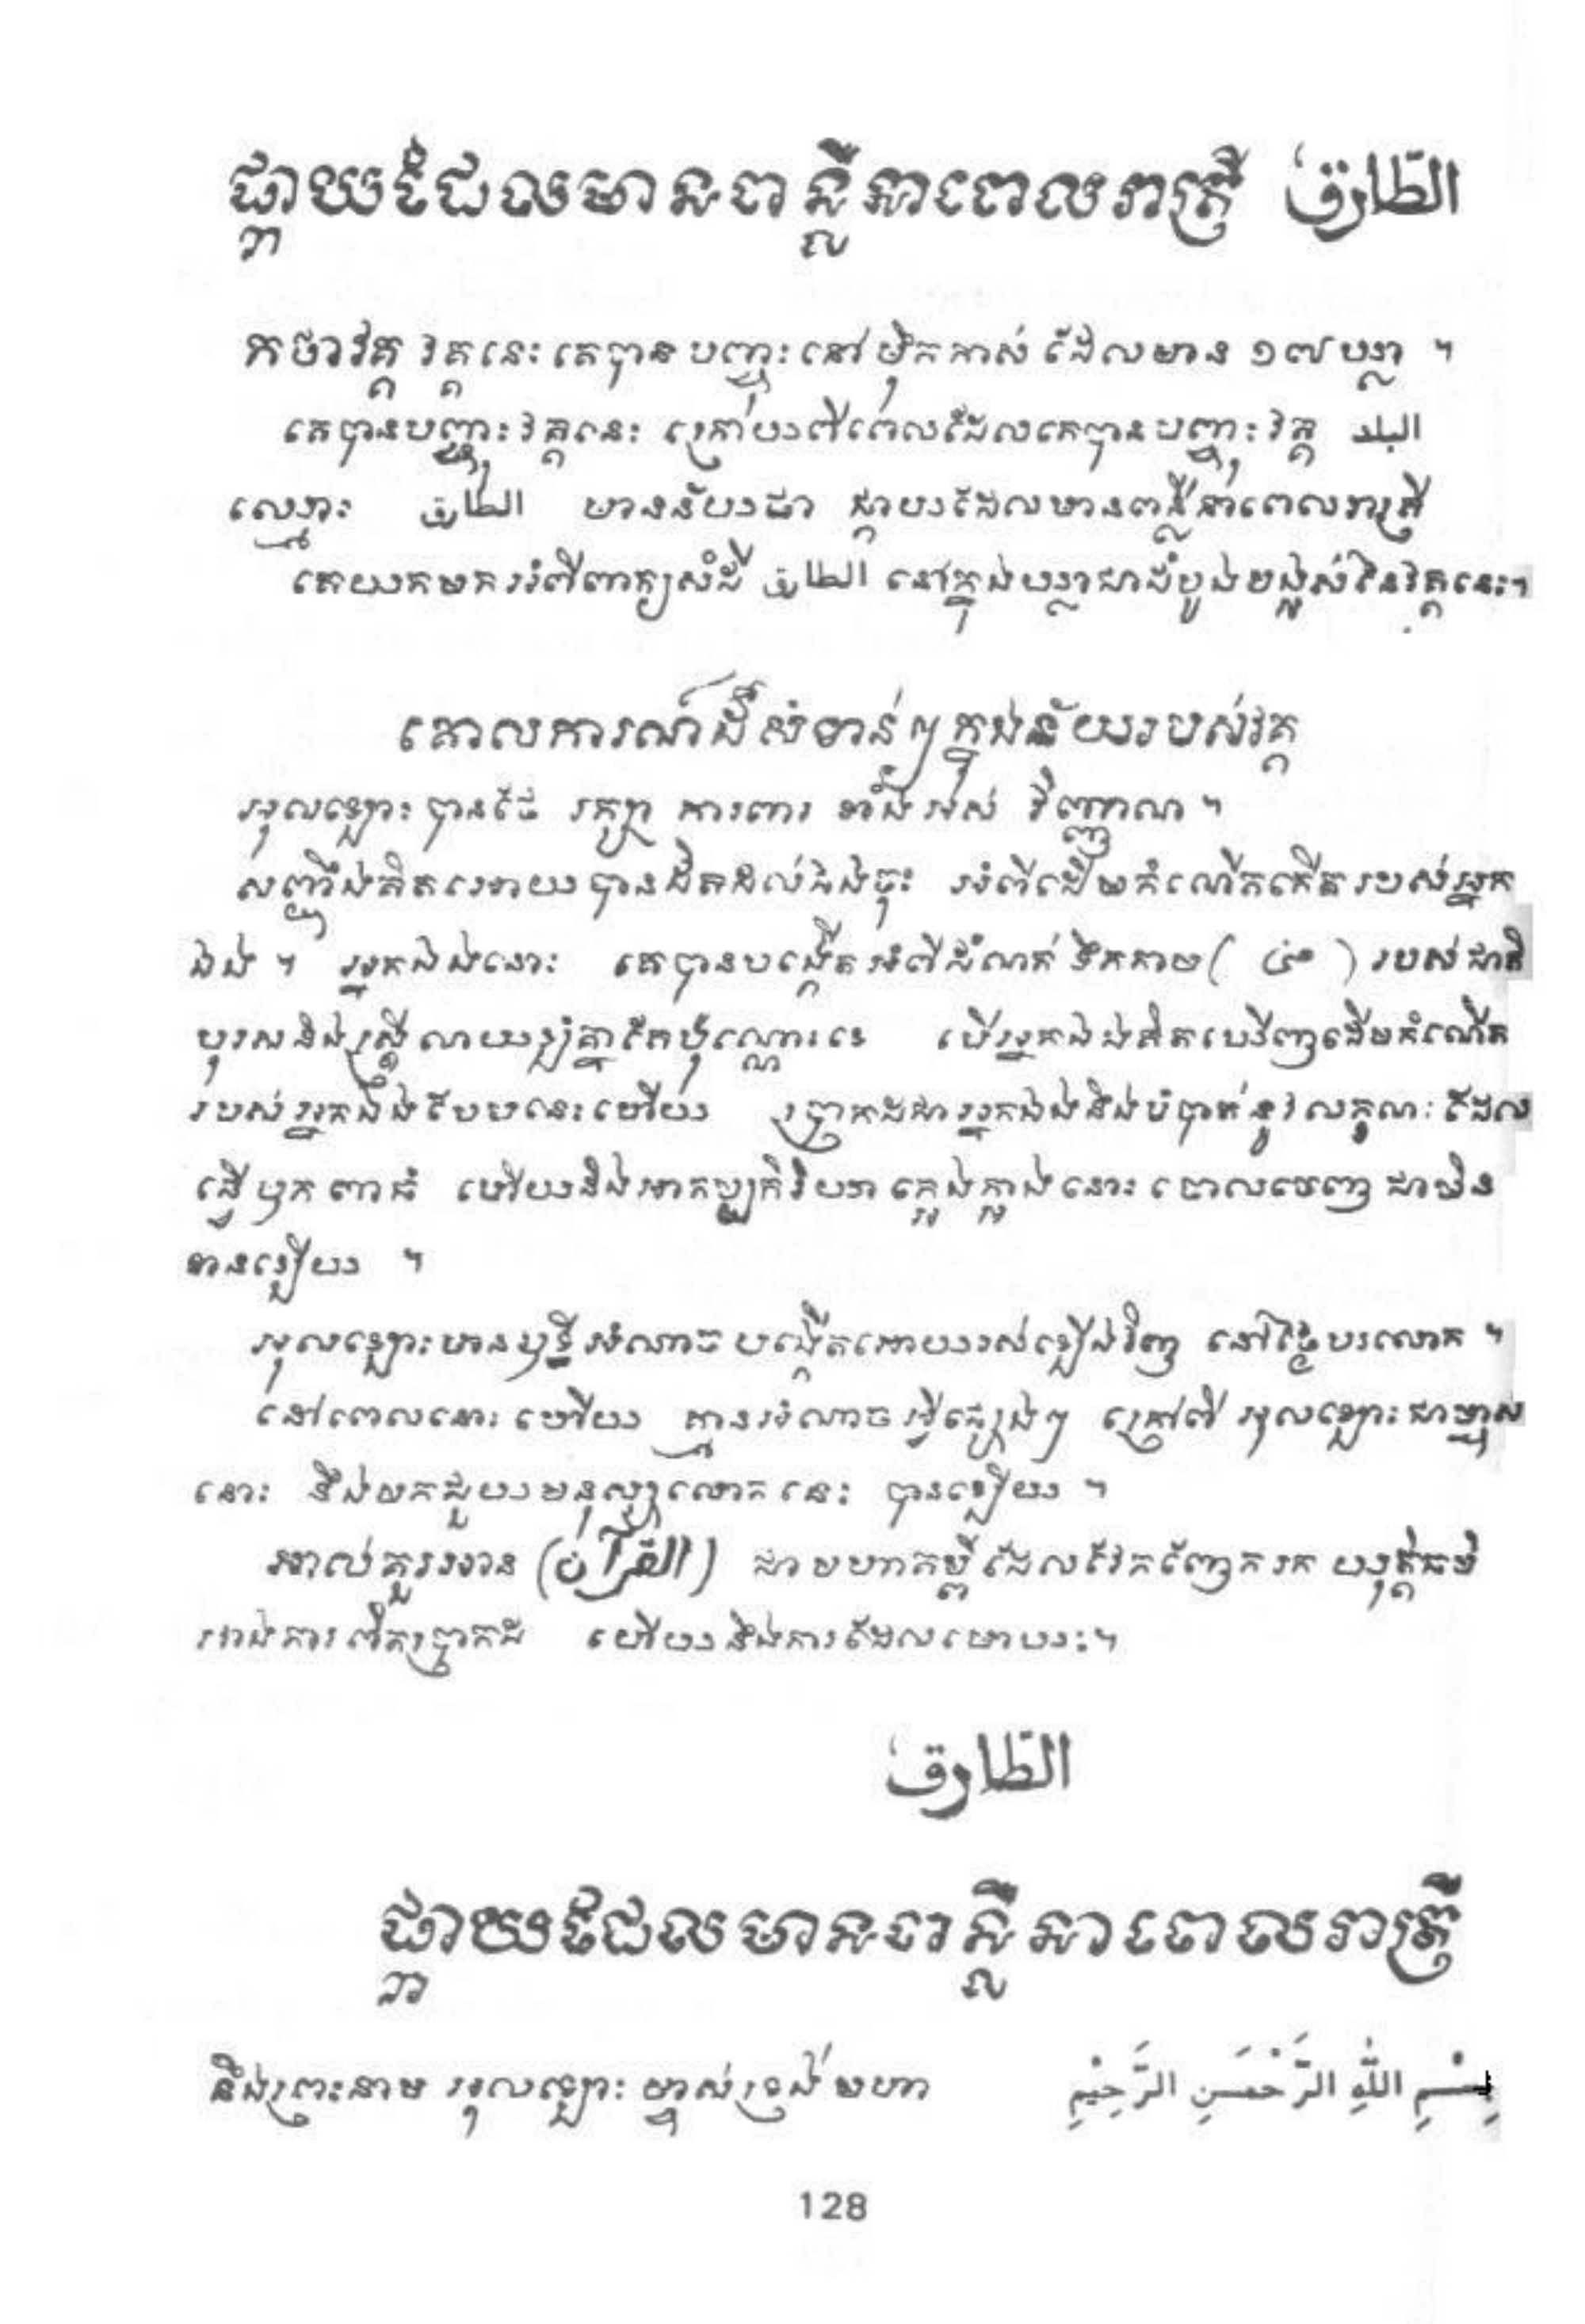 ផ្កាយដែលមានពន្លឺនាពេលរាត្រី الطّارق
កថាវគ្គ វគ្គនេះ គេបានបញ្ចុះនៅម៉ិកកាស់ ដែលមាន ១៧ ឃ្លា ។
គេបានបញ្ចុះវគ្គនេះ ក្រោយពីពេលដែលគេបានបញ្ចុះវគ្គ البلد
ឈ្មោះ الطارق មានន័យថា ផ្កាយដែលមានពន្លឺនាពេលរាត្រី
គេយកមកអំពីពាក្យសំដី الطارق នៅក្នុងឃ្លាជាដំបូងបង្អស់នៃវគ្គនេះ។
គោលការណ៍ដ៏សំខាន់ៗក្នុងន័យរបស់វគ្គ
អុលឡោះ បានថែ រក្សា ការពារ ទាំងអស់ វិញ្ញាណ ។
សញ្ជឹងគិតអោយបានដិតដល់ឯងចុះ អំពីដើមកំណើតកើតរបស់អ្នក
ឯង ។ អ្នកឯងនោះ គេបានបង្កើតអំពីដំណក់ ទឹកកាម ( منى ) របស់ជាតិ
បុរសនិងស្ត្រី លាយឡំគ្នាតែប៉ុណ្ណោះទេ បើអ្នកឯងគិតឃើញដើមកំណើត
របស់អ្នកឯងបែបនេះហើយ ប្រាកដជាអ្នកឯងនឹងបំបាត់នូវលក្ខណៈដែល
ធ្វើឫកពាធំ ហើយនិងអាកប្បកិរិយា ក្អេងក្អាងនោះ ចោលចេញ ជាមិន
ខានឡើយ ។
អុលឡោះមានឫទ្ធិអំណាច បង្កើតអោយរស់ឡើងវិញ នៅថ្ងៃបរលោក ។
នៅពេលនោះហើយ គ្មានអំណាចអ្វីផ្សេងៗ ក្រៅពី អុលឡោះជាម្ចាស់
នោះ នឹងមកជួយមនុស្សលោកនេះ បានឡើយ ។
អាល់គួរអាន (القرآن) ជាមហាគម្ពីរដែលវែកញែករក យុត្តិធម៌
អាងការពិតប្រាកដ ហើយនិងការដែលមោឃៈ។
الطّارق
ផ្កាយដែលមានពន្លឺនាពេលរាត្រី
នឹងព្រះនាម អុលឡោះ ម្ចាស់ទ្រង់មហា بِسْمِ اللَّهِ الرَّحْمَنِ الرَّحِيْمِ
128